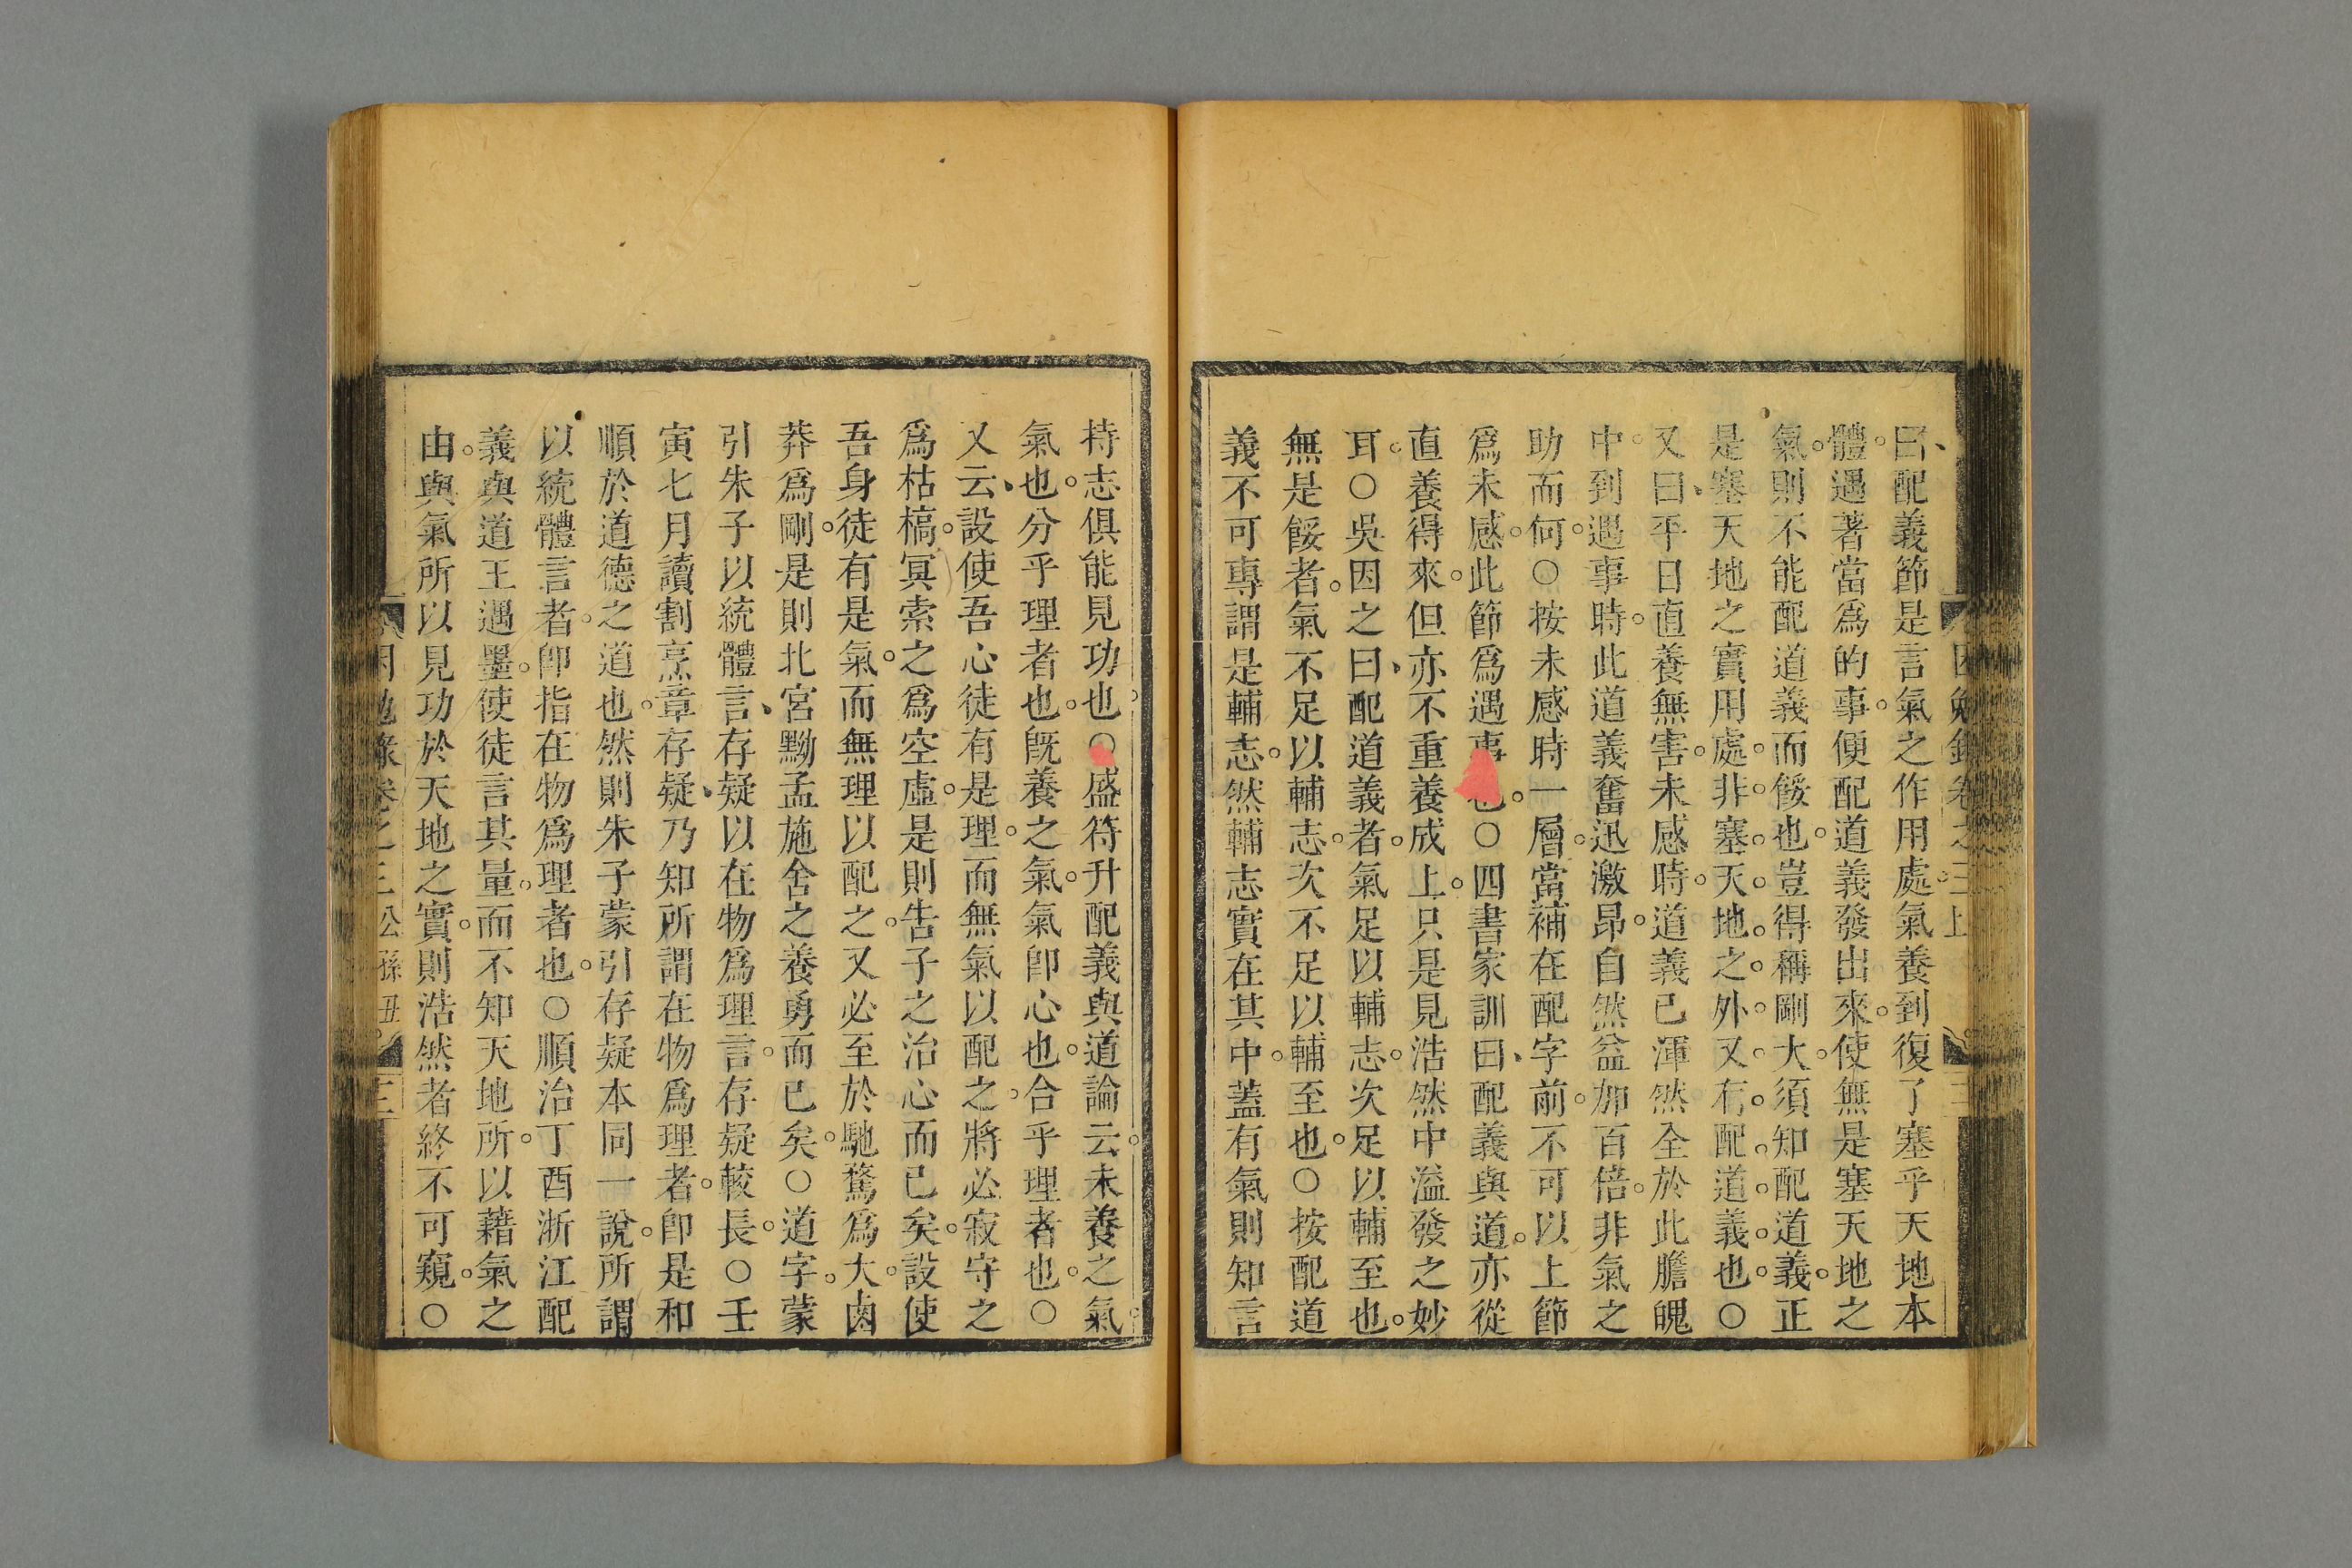 曰配義節是言氣之作用處氣養到復了塞乎天地本
體遇著當爲的事便配道義發出來使無是塞天地之
氣則不能配道義而餒也豈得稱剛大須知配道義正
是塞天地之實用處非塞天地之外又有配道義也○
又曰平日直養無害未感時道義已渾然全於此膽魄
中到遇事時此道義奮迅激昂自然益加百倍非氣之
助而何○按未感時一層當補在配字前不可以上節
爲未感此節爲遇事也○四書家訓曰配義與道亦從
直養得來但亦不重養成上只是見浩然中溢發之妙
耳○吳因之曰配道義者氣足以輔志次足以輔至也
無是餒者氣不足以輔志次不足以輔至也○按配道
義不可專謂是輔志然輔志實在其中蓋有氣則知言
持志俱能見功也○盛符升配義與道論云未養之氣
氣也分乎理者也旣養之氣氣卽心也合乎理者也○
又云設使吾心徒有是理而無氣以配之將必寂守之
爲枯槁冥索之爲空虛是則告子之治心而已矣設使
吾身徒有是氣而無理以配之又必至於馳騖爲大鹵
莽爲剛是則北宮黝孟施舍之養勇而已矣○道字蒙
引朱子以統體言存疑以在物爲理言存疑較長○壬
寅七月讀割烹章存疑乃知所謂在物爲理者卽是和
順於道德之道也然則朱子蒙引存疑本同一說所謂
以統體言者卽指在物爲理者也○順治丁酉浙江配
義與道王遇墨使徒言其量而不知天地所以藉氣之
由與氣所以見功於天地之實則浩然者終不可窺○